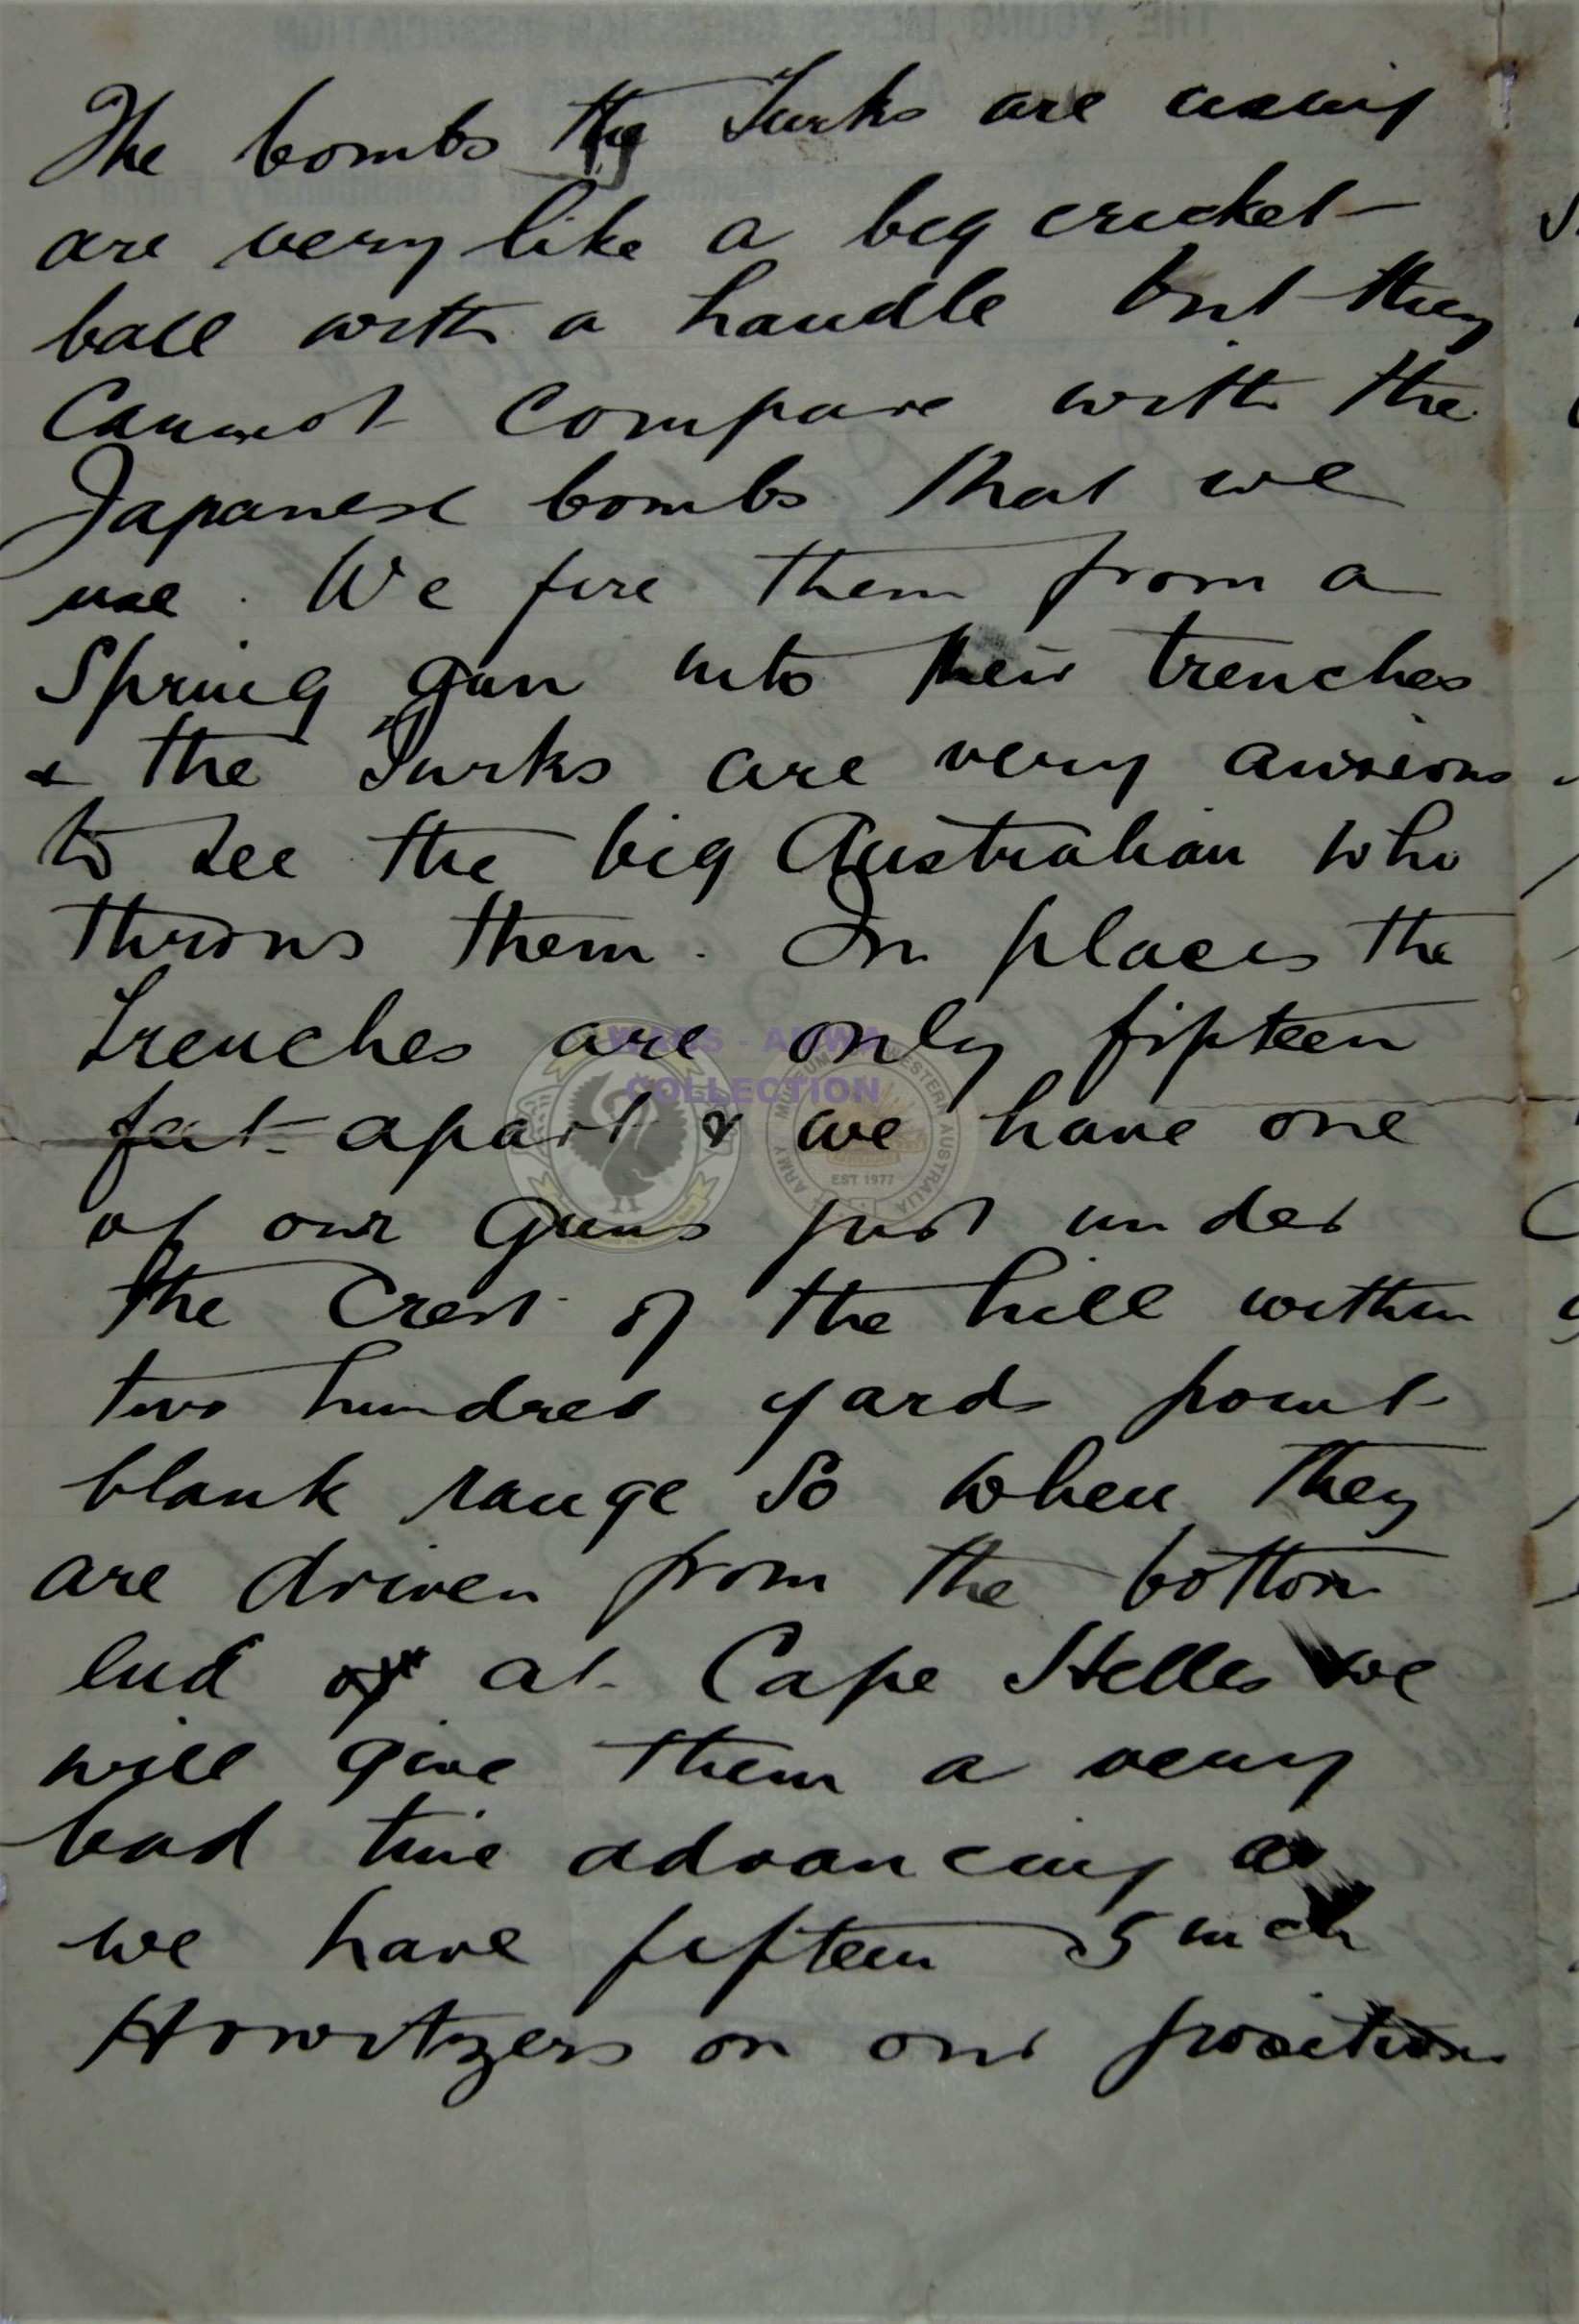 The bombs the Turks are using
are very like a big cricket
ball with a handle but they
Cannot Compare with the
Japanese bombs that we
use. We fire them from a
Spring gun into their trenches
& the Turks are very anxious
to see the big Australian who
throws them. In places the
trenches are only fifteen
feet apart & we have one
of our Guns just under
the Crest of the hill within
two hundred yards point
blank range So when they
are driven from the bottom
end of at Cape Helles we
will give them a very
bad time advancing as
we have fifteen 5 inch
Howitzers on our position
WAGS - AMWA
COLLECTION
ARMY MUSEUM OF WESTERN AUSTRALIA
EST 1977